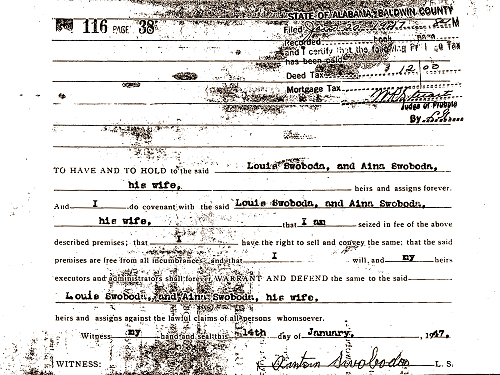 116 PAGE 38
STATE OF ALABAMA, BALDWIN COUNTY
Filed M
Recorded book page
and I certify that the following Tax
has been paid
Deed Tax 12.00
Mortgage Tax
Judge of Probate
By
TO HAVE AND TO HOLD to the said Louis Swoboda, and Aina Swoboda,
his wife, heirs and assigns forever.
And I do covenant with the said Louis Swoboda, and Aina Swoboda,
his wife, that I am seized in fee of the above
described premises; that I have the right to sell and convey the same; that the said
premises are free from all incumbrances, and that I will, and my heirs
executors and administrators shall forever WARRANT AND DEFEND the same to the said
Louis Swoboda, and Aina Swoboda, his wife,
heirs and assigns against the lawful claims of all persons whomsoever.
Witness my hand and seal this 14th day of January, 1947.
WITNESS: Swoboda L. S.